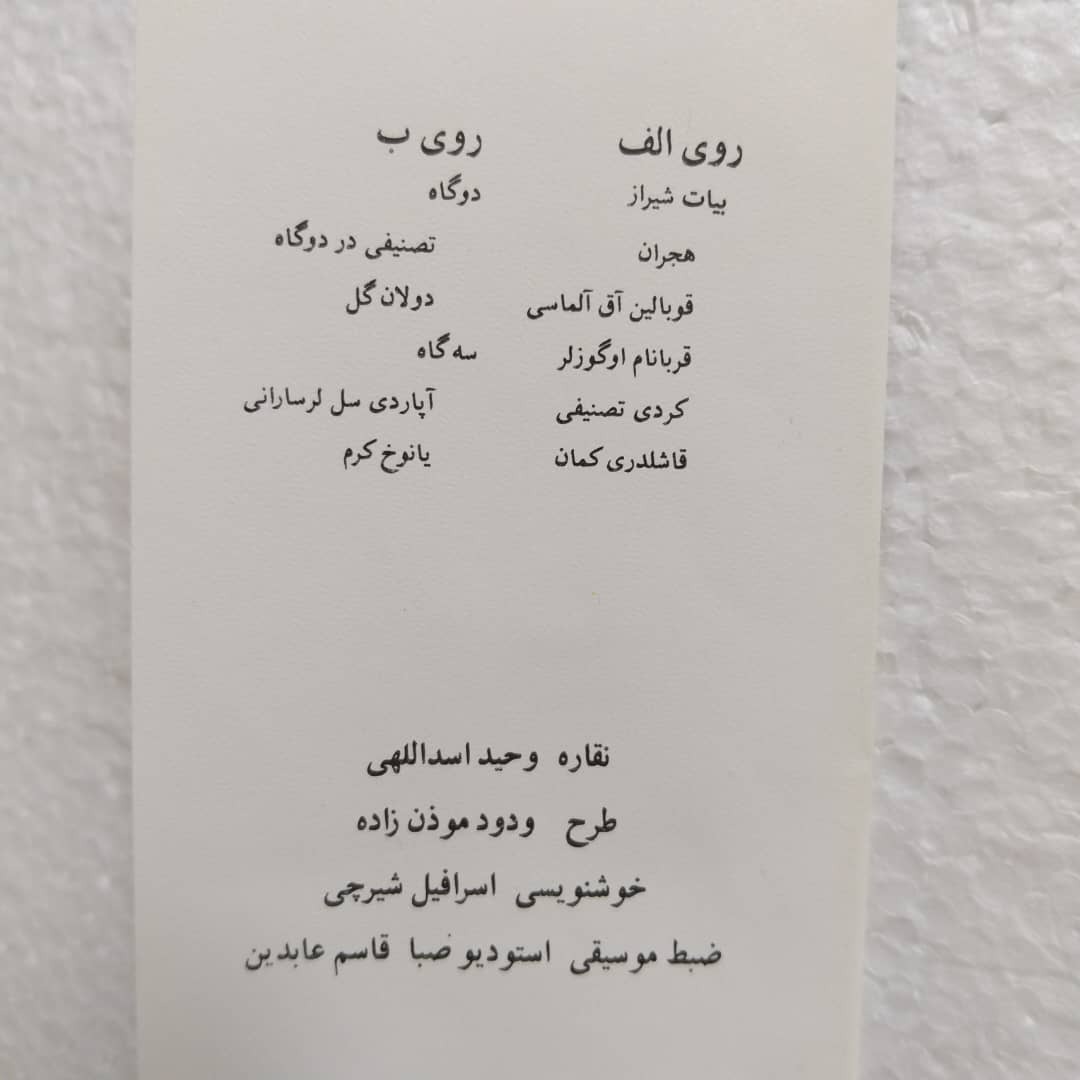 روی الف
بیات شیراز
هجران
قوبالین آق آلماسی
قربانام اوگوزلر
کردی تصنیفی
قاشلدری کمان
روی ب
دوگاه
تصنیفی در دوگاه
دولان گل
سه گاه
آپاردی سل لرسارانی
یانوخ کرم
نقاره وحید اسداللهی
طرح ودود موذن زاده
خوشنویسی اسرافیل شیرچی
ضبط موسیقی استودیو صبا قاسم عابدین